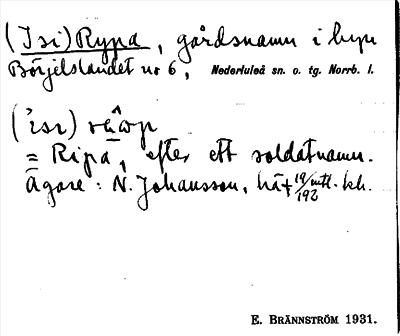 (Isi) Rypa, gårdsnamn i byn
Börjelslandet nr 6, Nederluleå sn. o. tg. Norrb. l.
= Ripa, efter ett soldatnamn.
Ägare: N. Johansson,
E. BRÄNNSTRÖM 1931.